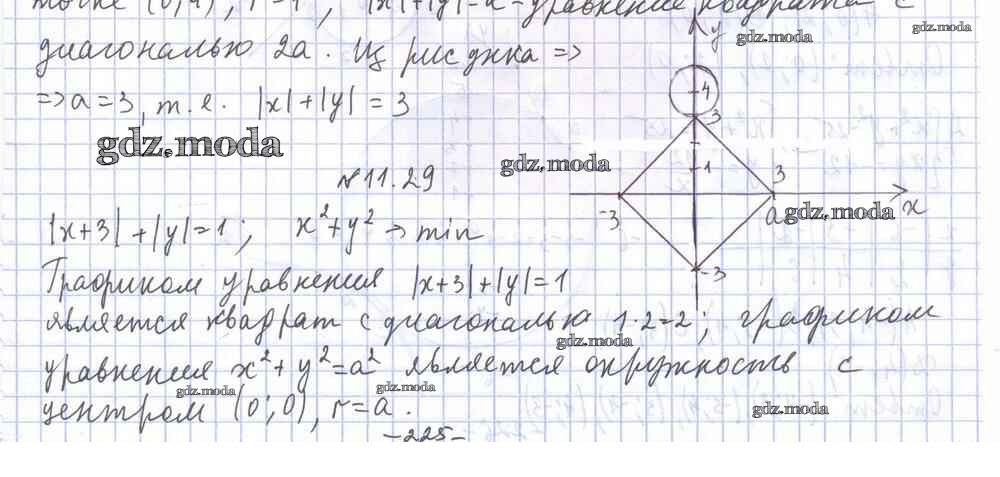 точке (0;4), r=1, |x|+|y|=a - уравнение квадрата с
диагональю 2a. Из рисунка =>
=> a=3, т.е. |x|+|y|=3
№11.29
|x+3|+|y|=1; x²+y² → min
Графиком уравнения |x+3|+|y|=1
является квадрат с диагональю 1·2=2; графиком
уравнения x²+y²=a² является окружность с
центром (0;0), r=a.
-225-
y
4
3
1
-3
3
a
x
-3
gdz.moda
gdz.moda
gdz.moda
gdz.moda
gdz.moda
gdz.moda
gdz.moda
gdz.moda
gdz.moda